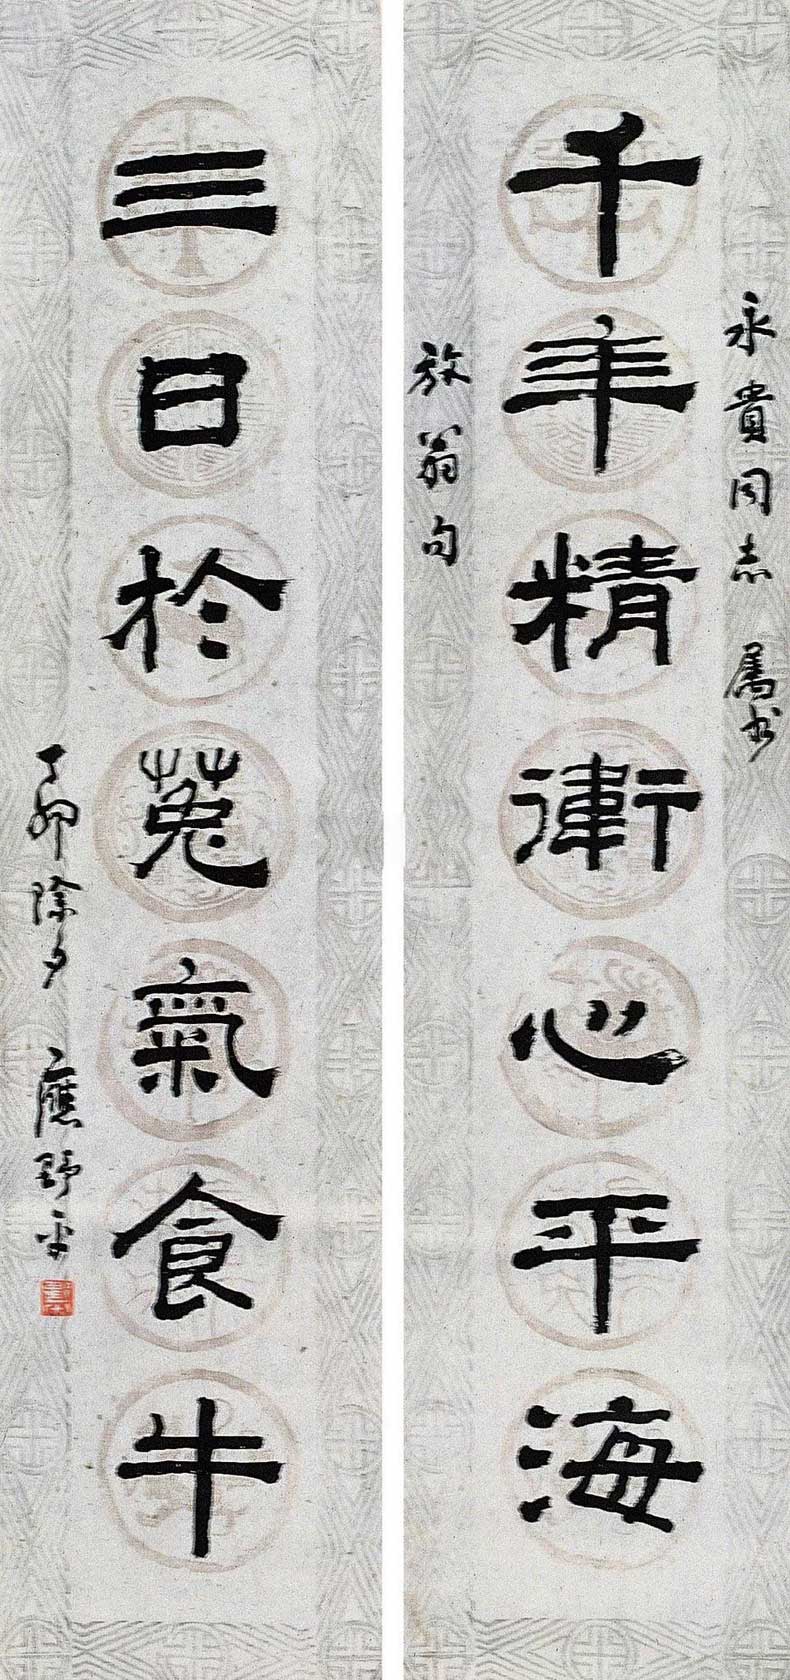 永貴同志 属书
千年精衛心平海
放翁句
三日於菟氣食牛
丁卯除夕 應野平